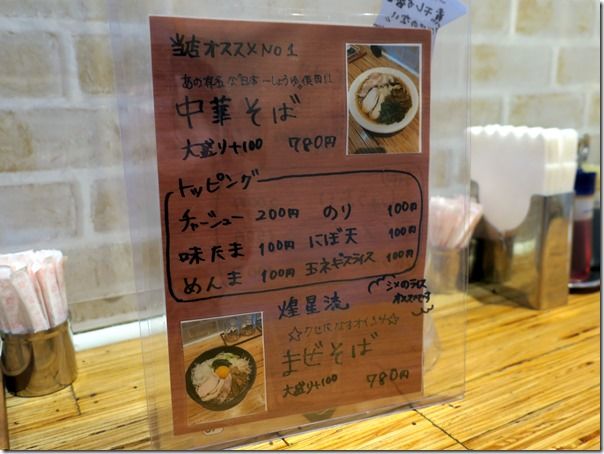 当店オススメNo1
中華そば
大盛り+100 780円
トッピング
チャーシュー 200円 のり 100円
味たま 100円 にぼ天 100円
めんま 100円 玉ネギスライス 100円
〆のライス
オススメです
煌星流
まぜそば
大盛り+100 780円